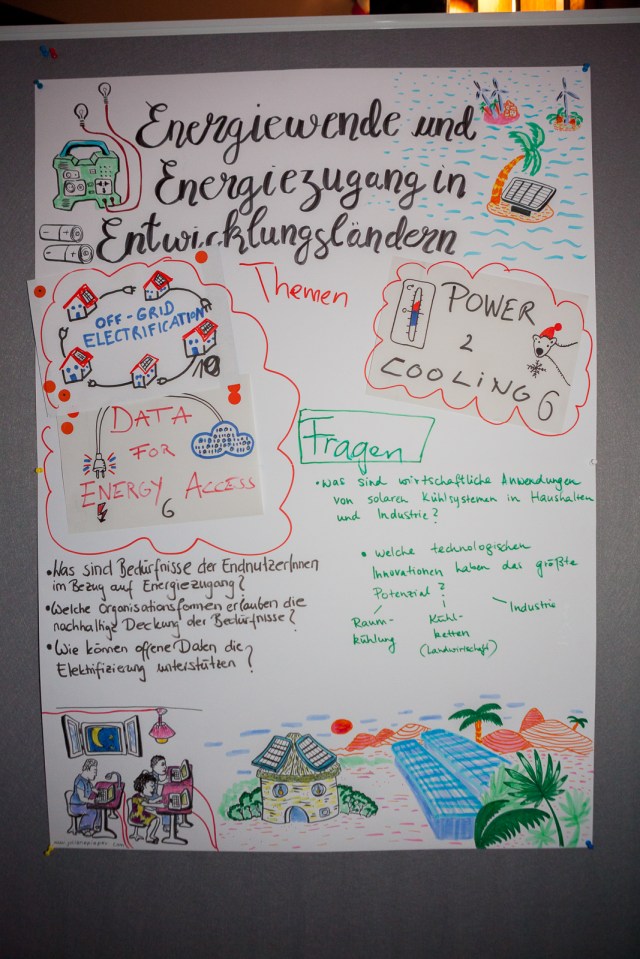 Energiewende und
Energiezugang in
Entwicklungsländern
Themen
OFF-GRID
ELECTRIFICATION
10
DATA
FOR
ENERGY ACCESS
6
POWER
2
COOLING 6
Fragen
• Was sind wirtschaftliche Anwendungen
von solaren Kühlsystemen in Haushalten
und Industrie?
• Welche technologischen
Innovationen haben das größte
Potenzial?
Raum-
kühlung
Kühl-
ketten
(Landwirtschaft)
Industrie
• Was sind Bedürfnisse der EndnutzerInnen
im Bezug auf Energiezugang?
• Welche Organisationsformen erlauben die
nachhaltige Deckung der Bedürfnisse?
• Wie können offene Daten die
Elektifizierung unterstützen?